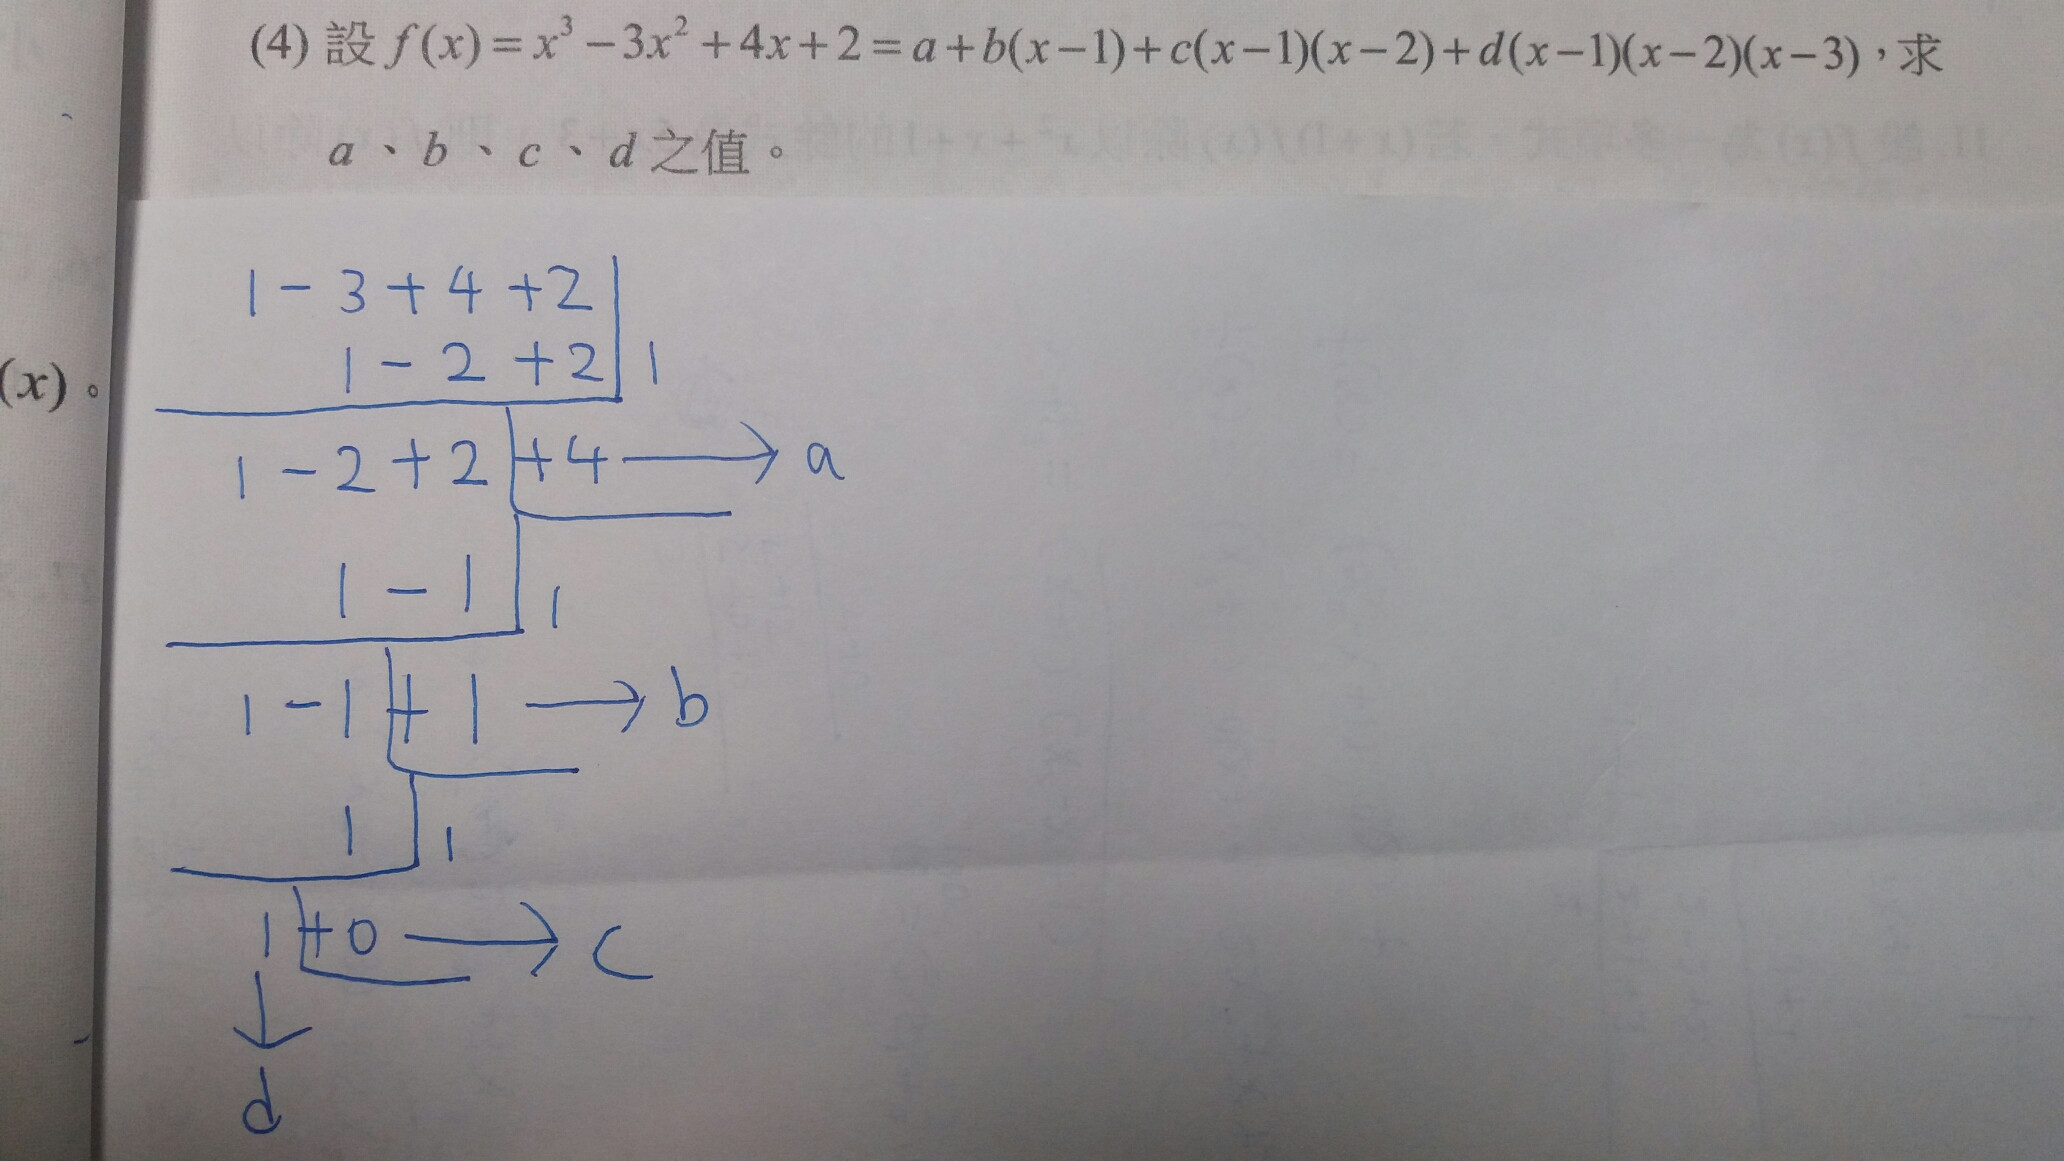 (4) 設 f(x)=x³−3x²+4x+2=a+b(x−1)+c(x−1)(x−2)+d(x−1)(x−2)(x−3),求
a、b、c、d 之值。
(x)。
1 − 3 + 4 + 2
1 − 2 + 2 | 1
1 − 2 + 2 | + 4 → a
1 − 1 | 1
1 − 1 | + 1 → b
1 | 1
1 | + 0 → c
↓
d